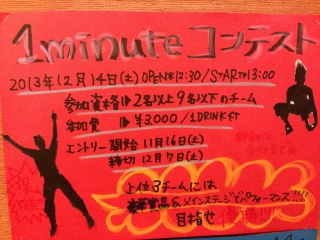 1minuteコンテスト
2013年12月14日(土) OPEN12:30/START13:00
参加資格 2名以上9名以下のチーム
参加費 ¥3,000/1DRINK付
エントリー開始 11月16日(土)
締切 12月7日(土)
上位3チームには
豪華賞品&メインステージでパフォーマンス!!!
目指せ優勝!!!